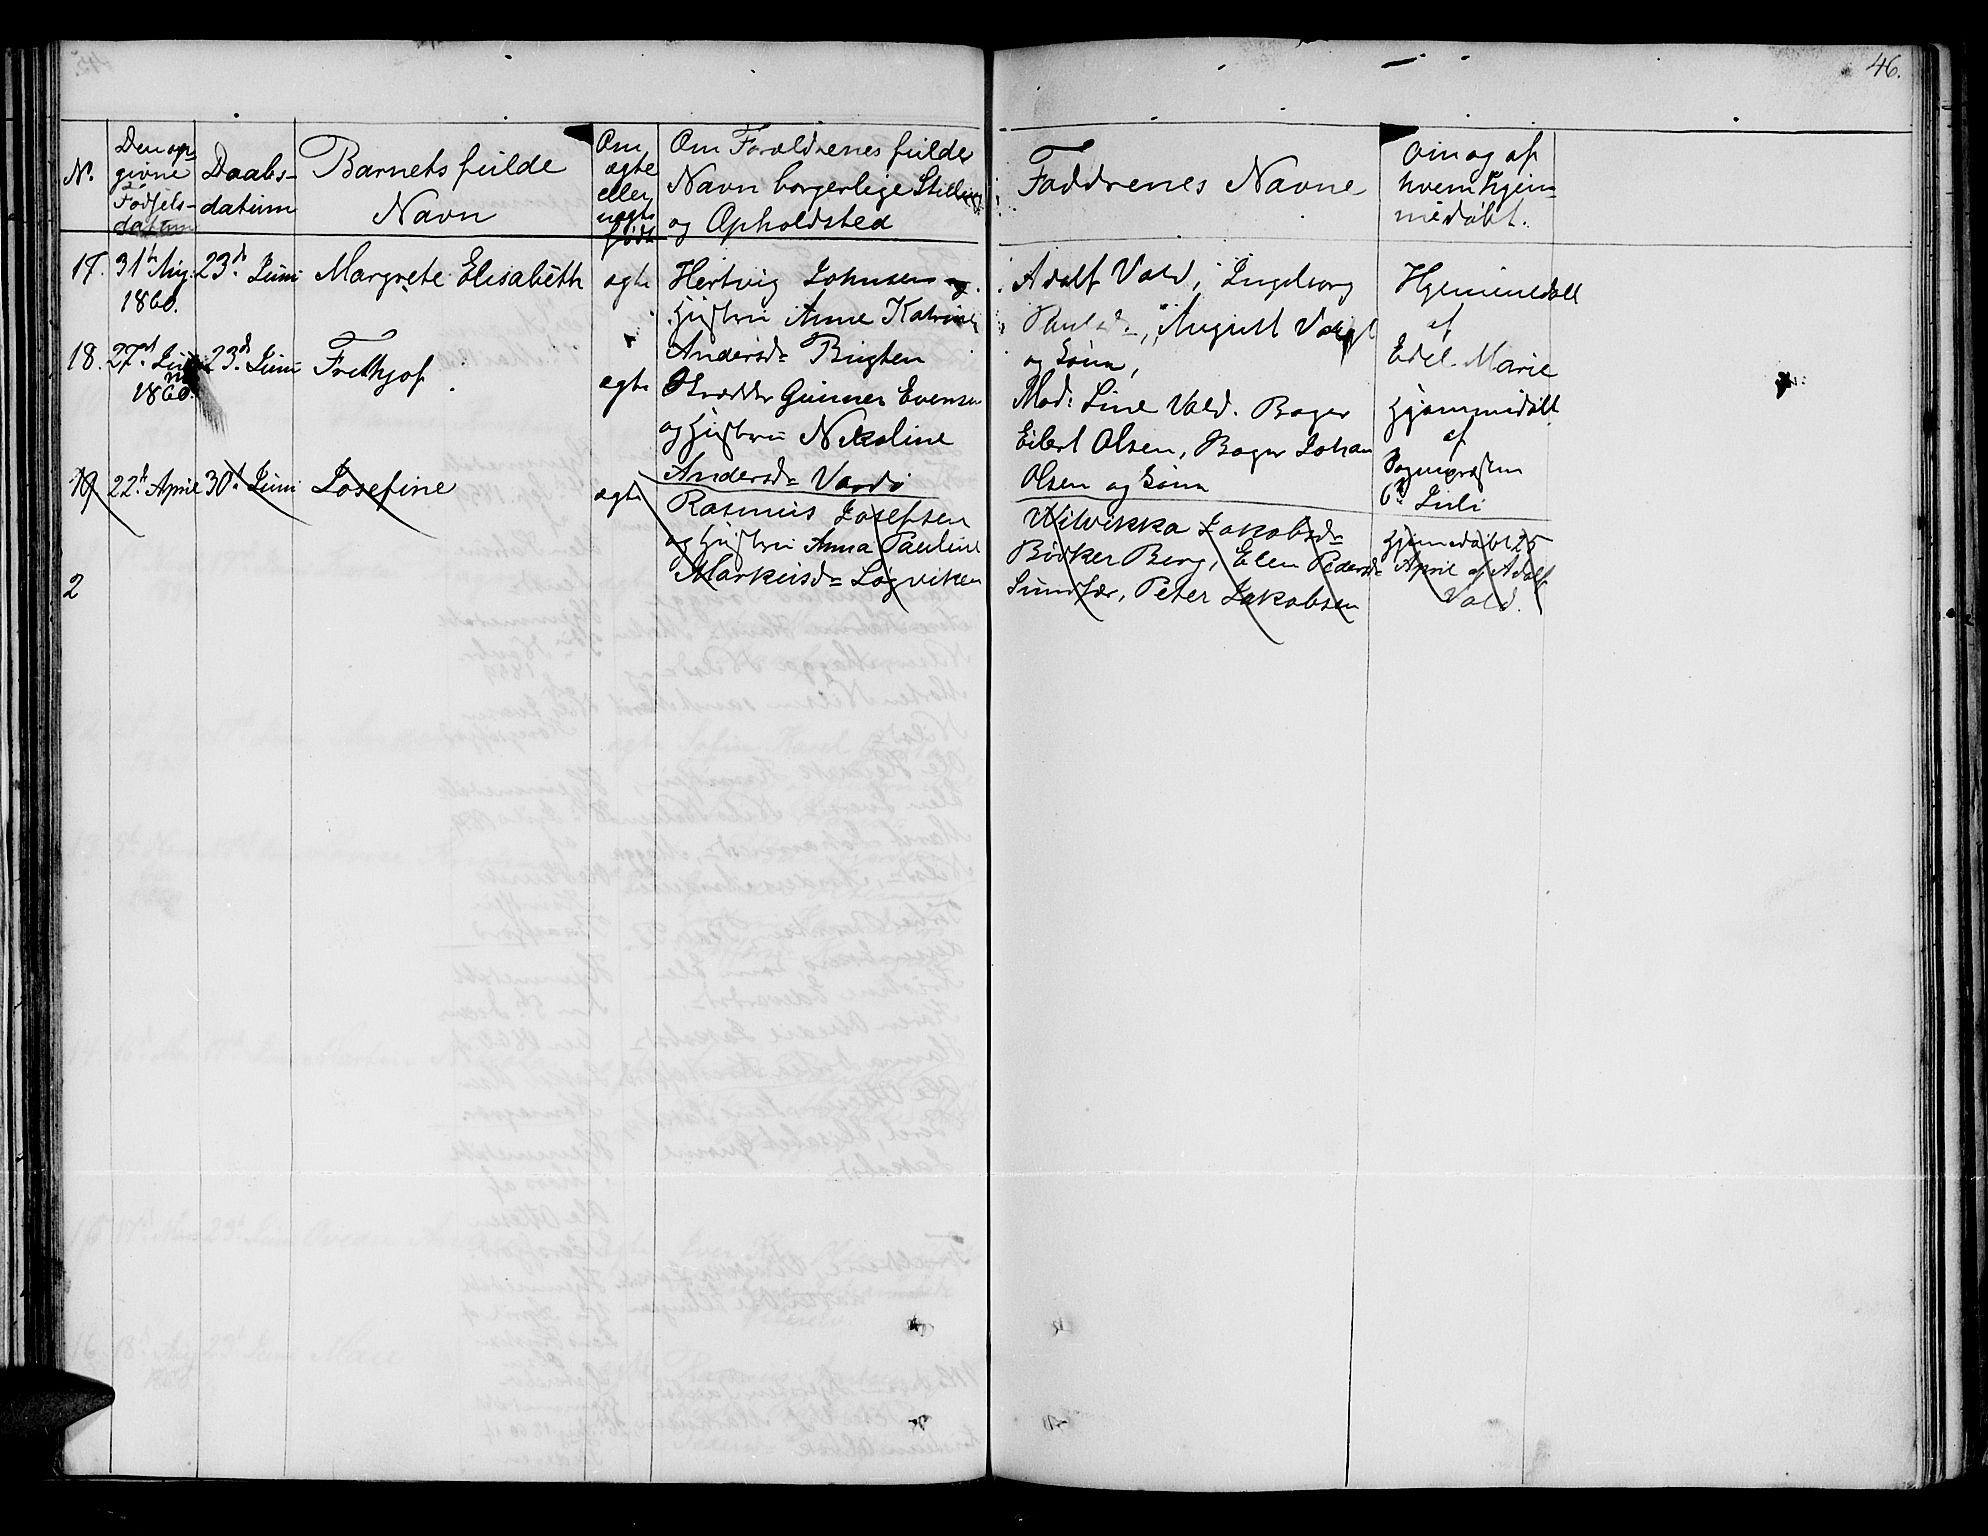 46.
N.
Den op-
givne
Fødsels-
datum
Daabs-
datum
Barnets fulde
Navn
Om
ægte
eller
uægte
født
Om Forældrenes fulde
Navn borgerlige Stilling
og Opholdsted
Faddrenes Navne
Om og af
hvem hjem-
medøbt.
17. 31t Aug. 23d Juni Margrete Elisabeth ægte
1860.
Hertvig Johnsen og
Hustru Anne Katrine
Andersd= Bugten
Adolf Vold, Ingeborg
Paulsd=, August
og Gom,
Hjemmedøbt
af
Edel Marie
18. 27d 23d Juni Frethjof ægte
1860.
Skrædder Gunner Evensen
og Hustru Nikoline
Andersd= Vardø
Mad: Line Vold. Bager
Eilert Olsen, Bager Johan
Olsen og Gom
Hjemmedøbt
af
Sognepræsten
6d Juli
19 22d April 30d Juni Josefine ægte
Rasmus Josefsen
og Hustru Anna Pauline
Markusd= Løgviken
Wilvikka Jakobsd=
Bødker Berg, Elen Pedersd=
Sundfær, Peter Jakobsen
Hjemmedøbt 25
April af Adolf
Vold.
2